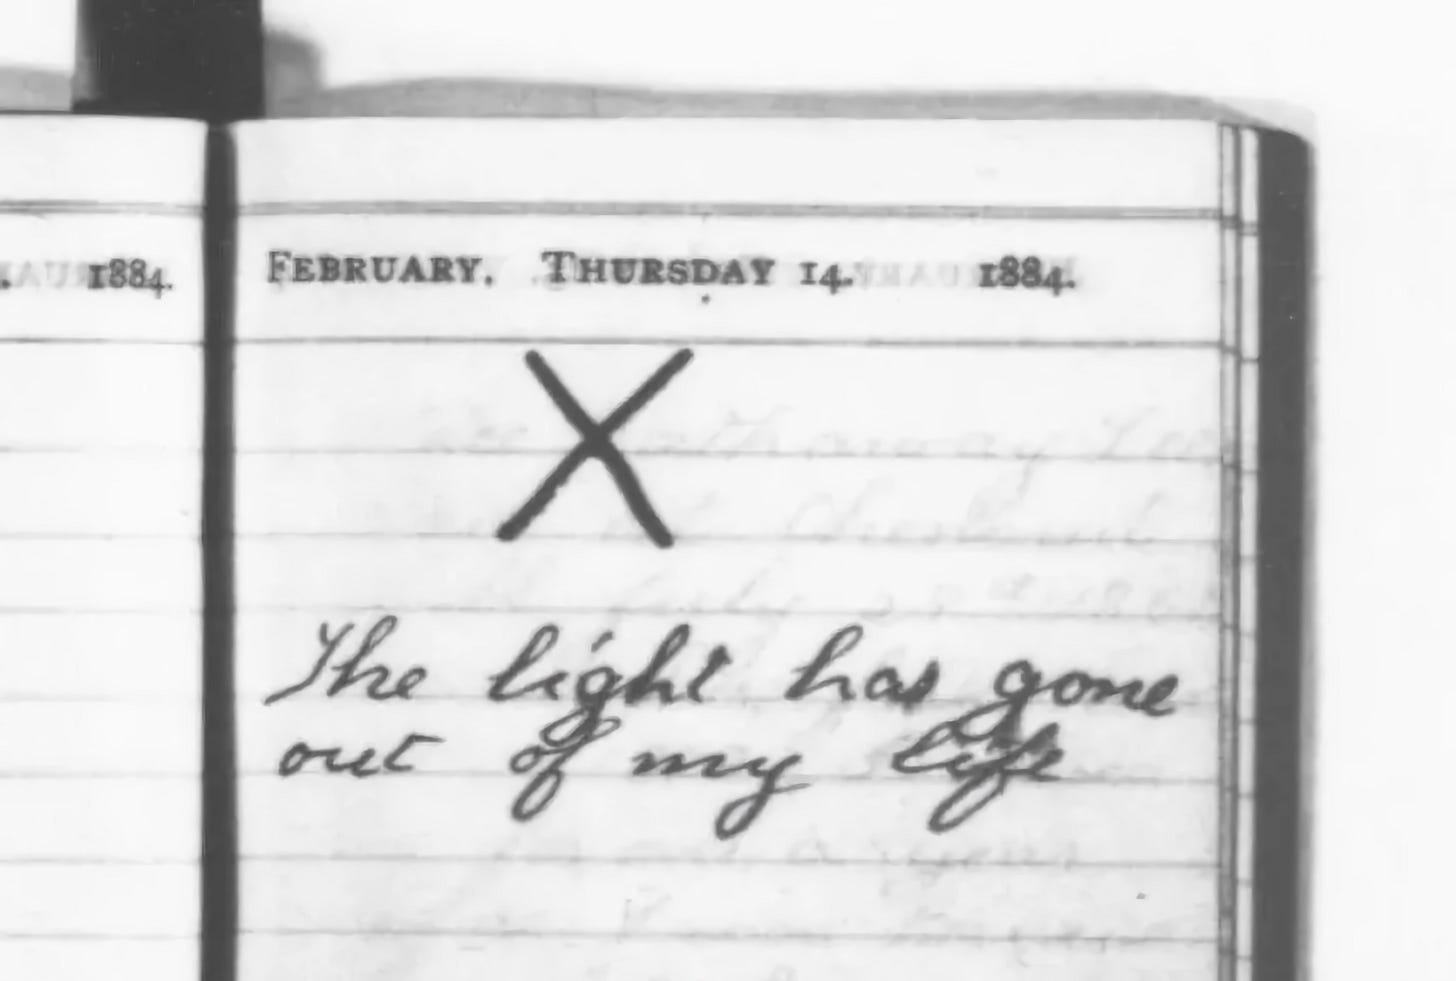 1884.
FEBRUARY. THURSDAY 14. 1884.
X
The light has gone
out of my life